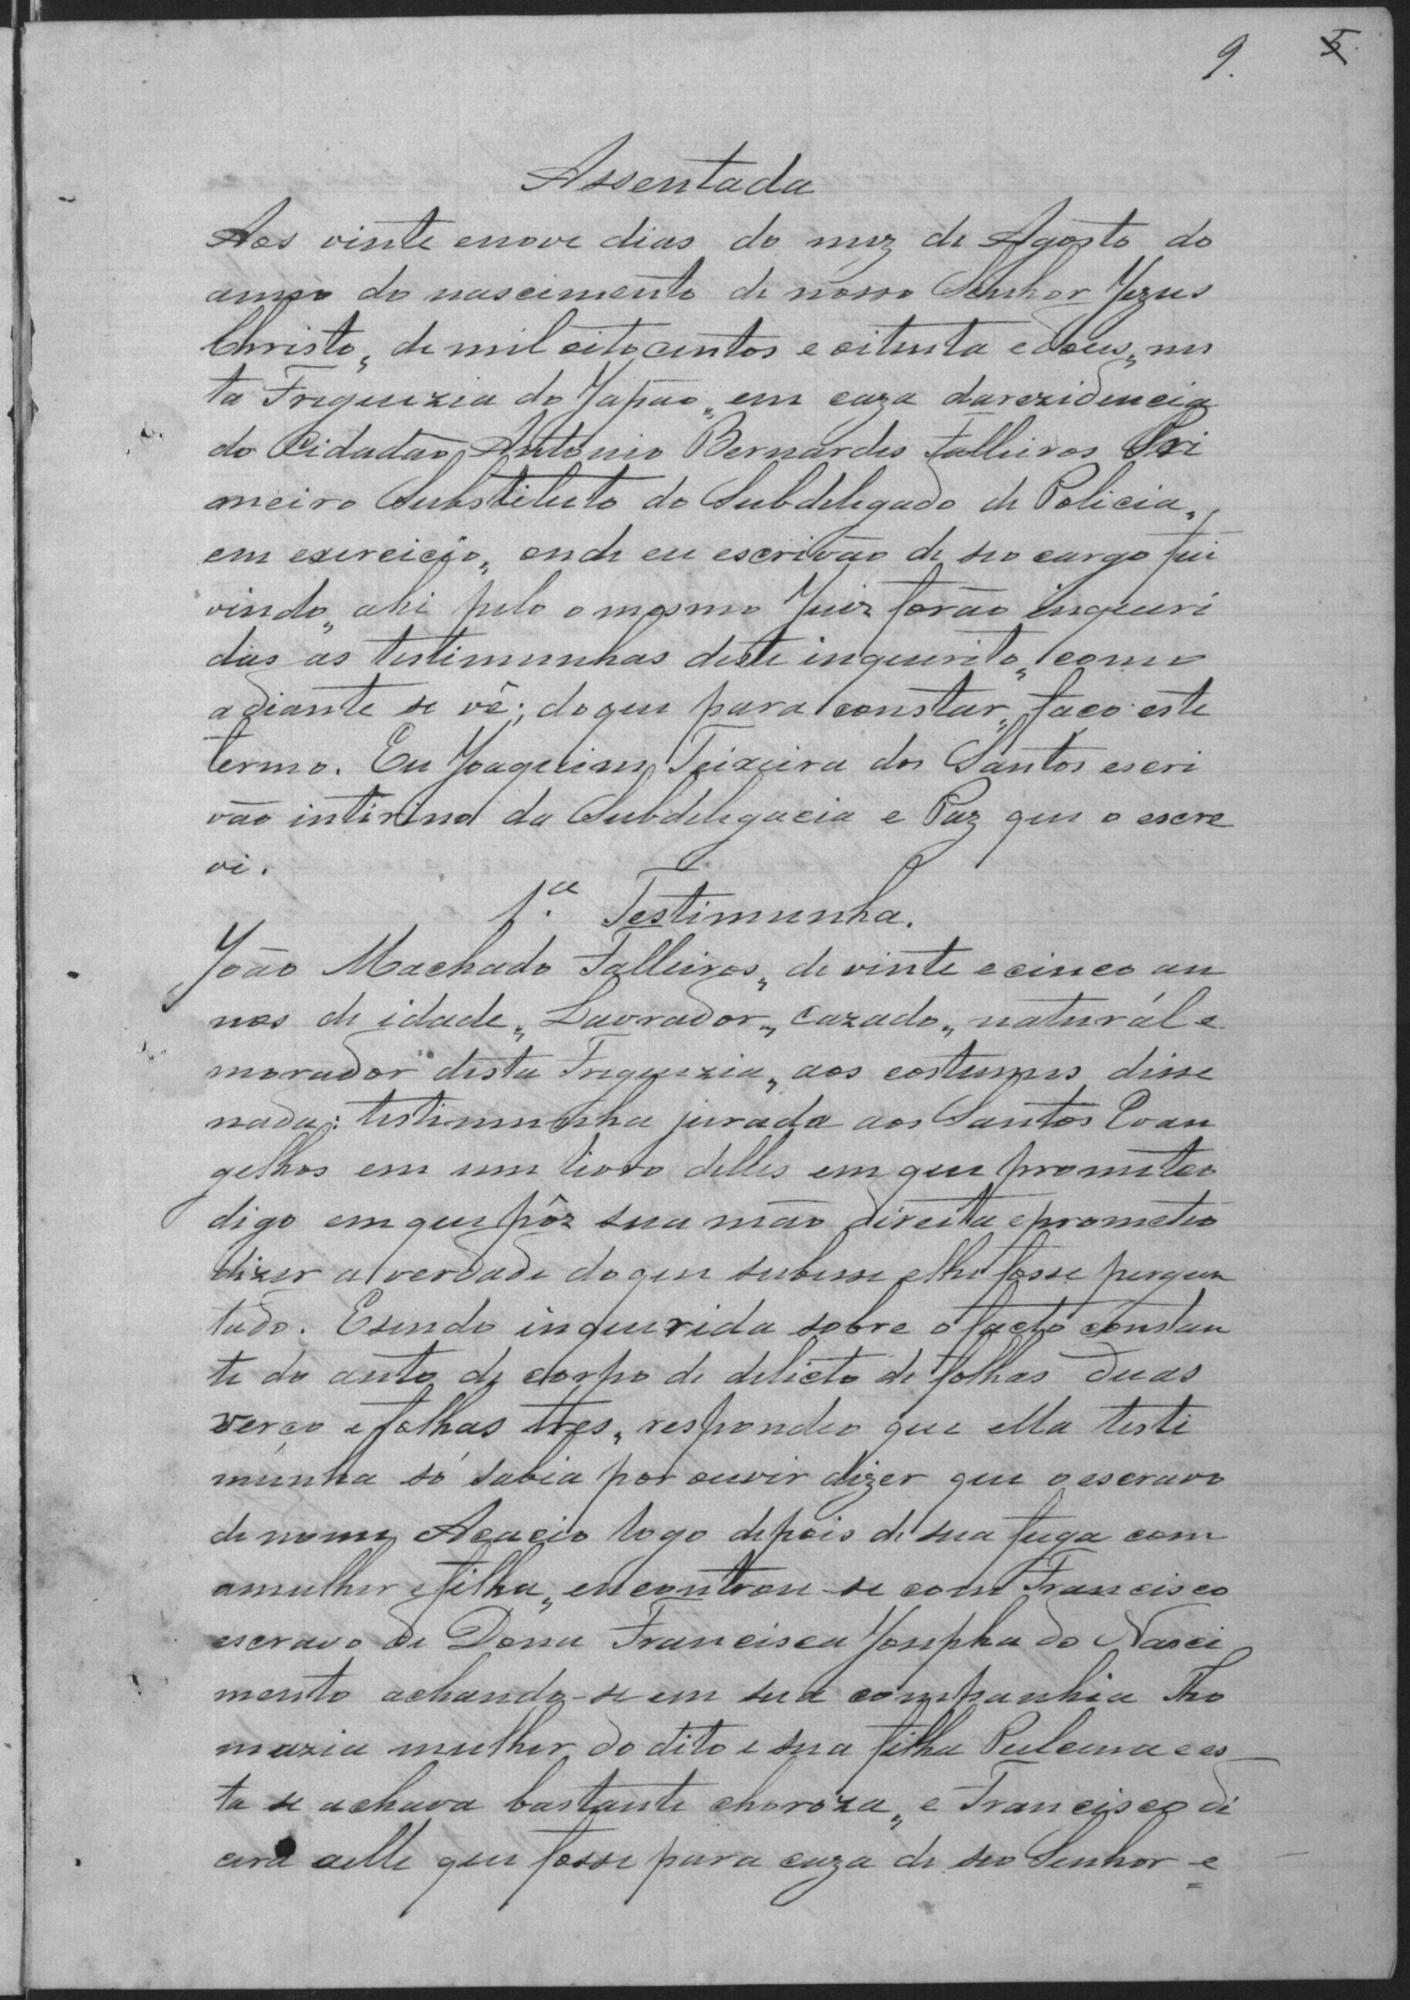 9. 5
Assentada
Aos vinte enove dias do mez de Agosto do
anno do nascimento de nosso Senhor Jezus
Christo„ de mil oito centos e oitenta edous„ nes
ta Freguezia do Japão„ em caza darezidencia
do Cidadão Antonio Bernardes Falleiros Pri
meiro Substituto do Subdelegado de Policia„
em exercicio„ onde eu escrivão de seo cargo fui
vindo„ ahi pelo o mesmo Juiz forão inqueri
das as testimunhas deste inquerito„ como
adiante se vê; doque para constar„ faço este
termo. Eu Joaquim Teixeira dos Santos escri
vão intirino da Subdelegacia e Paz que o escre
vi.
1.ª Testimunha.
João Machado Falleiros„ de vinte ecinco an
nos de idade„ Lavrador„ Cazado„ naturál e
morador desta Freguezia„ aos costumes disse
nada: testimunha jurada aos Santos Evan
gelhos em um livro delles em que prometeo
digo em que pôz sua mão direita eprometeo
dizer a verdade doque subesse elhe fosse pergun
tado. Esendo inquerida sobre ofacto constan
te do auto de corpo de delicto de folhas duas
verço efolhas tres„ respondeo que ella testi
munha só sabia por ouvir dizer que oescravo
de nome Acacio logo depois de sua fuga com
amulher efilha„ encontrou-se com Francisco
escravo de Dona Francisca Josepha do Nasci
mento achando-se em sua companhia Tho
mazia mulher do dito e sua filha Pulcena e es
ta se achava bastante choroza„ e Francisco di
cera aelle que fosse para caza de seo Senhor e